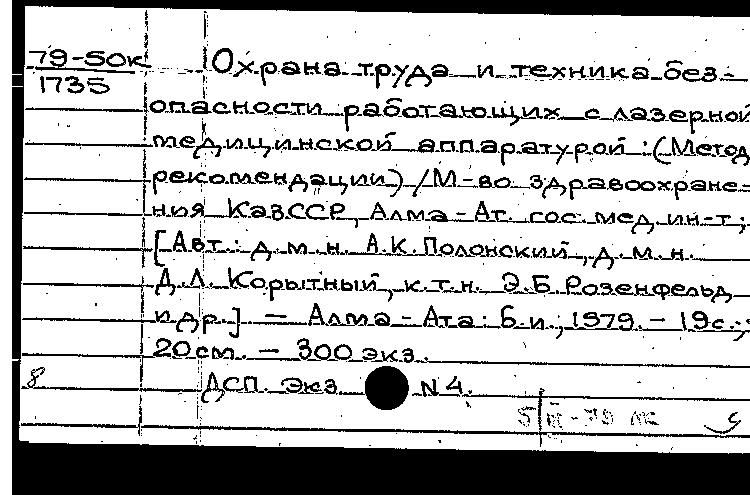 79-50к
1735
Охрана труда и техника без-
опасности работающих с лазерной
медицинской аппаратурой : (Метод.
рекомендации) / М-во здравоохране-
ния КазССР, Алма-Ат. гос. мед. ин-т;
[Авт.: д.м.н. А.К. Полонский, д.м.н.
Д.Л. Корытный, к.т.н. Э.Б. Розенфельд
и др.] — Алма-Ата : Б.и., 1979. — 19 с.;
20 см. — 300 экз.
8 ДСП. Экз N 4.
5/III-79